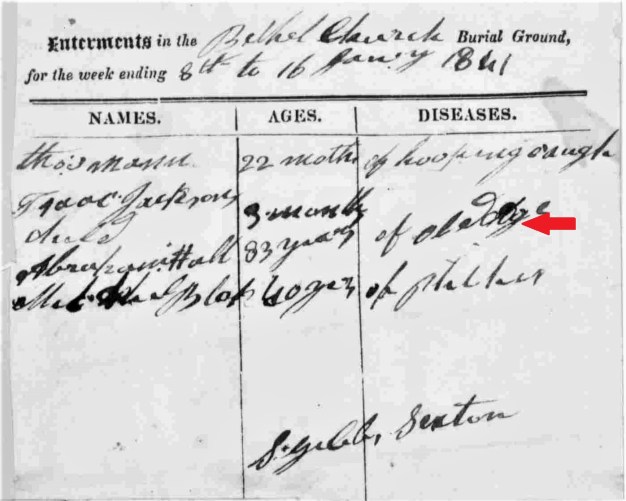 Interments in the Bethel Church Burial Ground,
for the week ending 8th to 16 Janury 1841
NAMES. AGES. DISEASES.
thos mann 22 moths of hooping caugh
Isaac Jackson
child 3 months
Abraham Hall 83 years of old age
Blak 40 yers of
S. Gibbs, Sexton